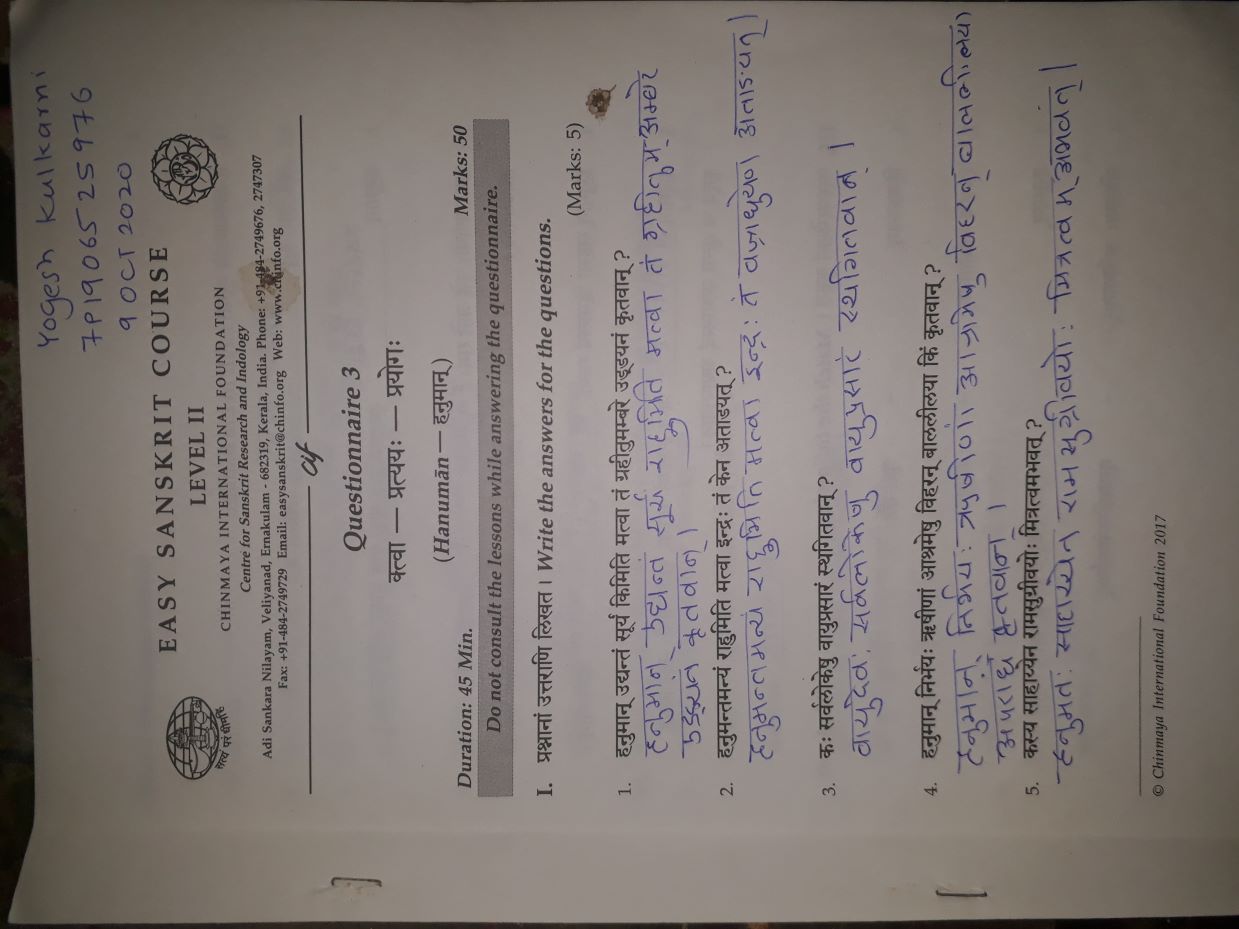 Yogesh Kulkarni
7P1906525976
9 OCT 2020
EASY SANSKRIT COURSE
LEVEL II
CHINMAYA INTERNATIONAL FOUNDATION
Centre for Sanskrit Research and Indology
Adi Sankara Nilayam, Veliyanad, Ernakulam - 682319, Kerala, India. Phone: +91-484-2749676, 2747307
Fax: +91-484-2749729 Email: easysanskrit@chinfo.org Web: www.chinfo.org
सत्यं परं धीमहि
cif
Questionnaire 3
क्त्वा — प्रत्ययः — प्रयोगः
(Hanumān — हनुमान्)
Duration: 45 Min. Marks: 50
Do not consult the lessons while answering the questionnaire.
I. प्रश्नानां उत्तराणि लिखत । Write the answers for the questions.
(Marks: 5)
1. हनुमान् उद्यन्तं सूर्यं किमिति मत्वा तं ग्रहीतुमम्बरे उड्डयनं कृतवान् ?
हनुमान् उद्यन्तं सूर्यं राहुमिति मत्वा तं ग्रहीतुम् अम्बरे
उड्ड्यनं कृतवान् ।
2. हनुमन्तमन्यं राहुमिति मत्वा इन्द्रः तं केन अताडयत् ?
हनुमन्तमन्यं राहुमिति मत्वा इन्द्रः तं वज्राधुयेण अताडयत् ।
3. कः सर्वलोकेषु वायुप्रसारं स्थगितवान् ?
वायुदेवः सर्वलोकेषु वायुप्रसारं स्थगितवान् ।
4. हनुमान् निर्भयः ऋषीणां आश्रमेषु विहरन् बाललीलया किं कृतवान् ?
हनुमान् निर्भयः ऋषीणां आश्रमेषु विहरन् बाललीलया
अपराधं कृतवान् ।
5. कस्य साहाय्येन रामसुग्रीवयोः मित्रत्वमभवत् ?
हनुमतः साहाय्येन रामसुग्रीवयोः मित्रत्वम् अभवत् ।
© Chinmaya International Foundation 2017